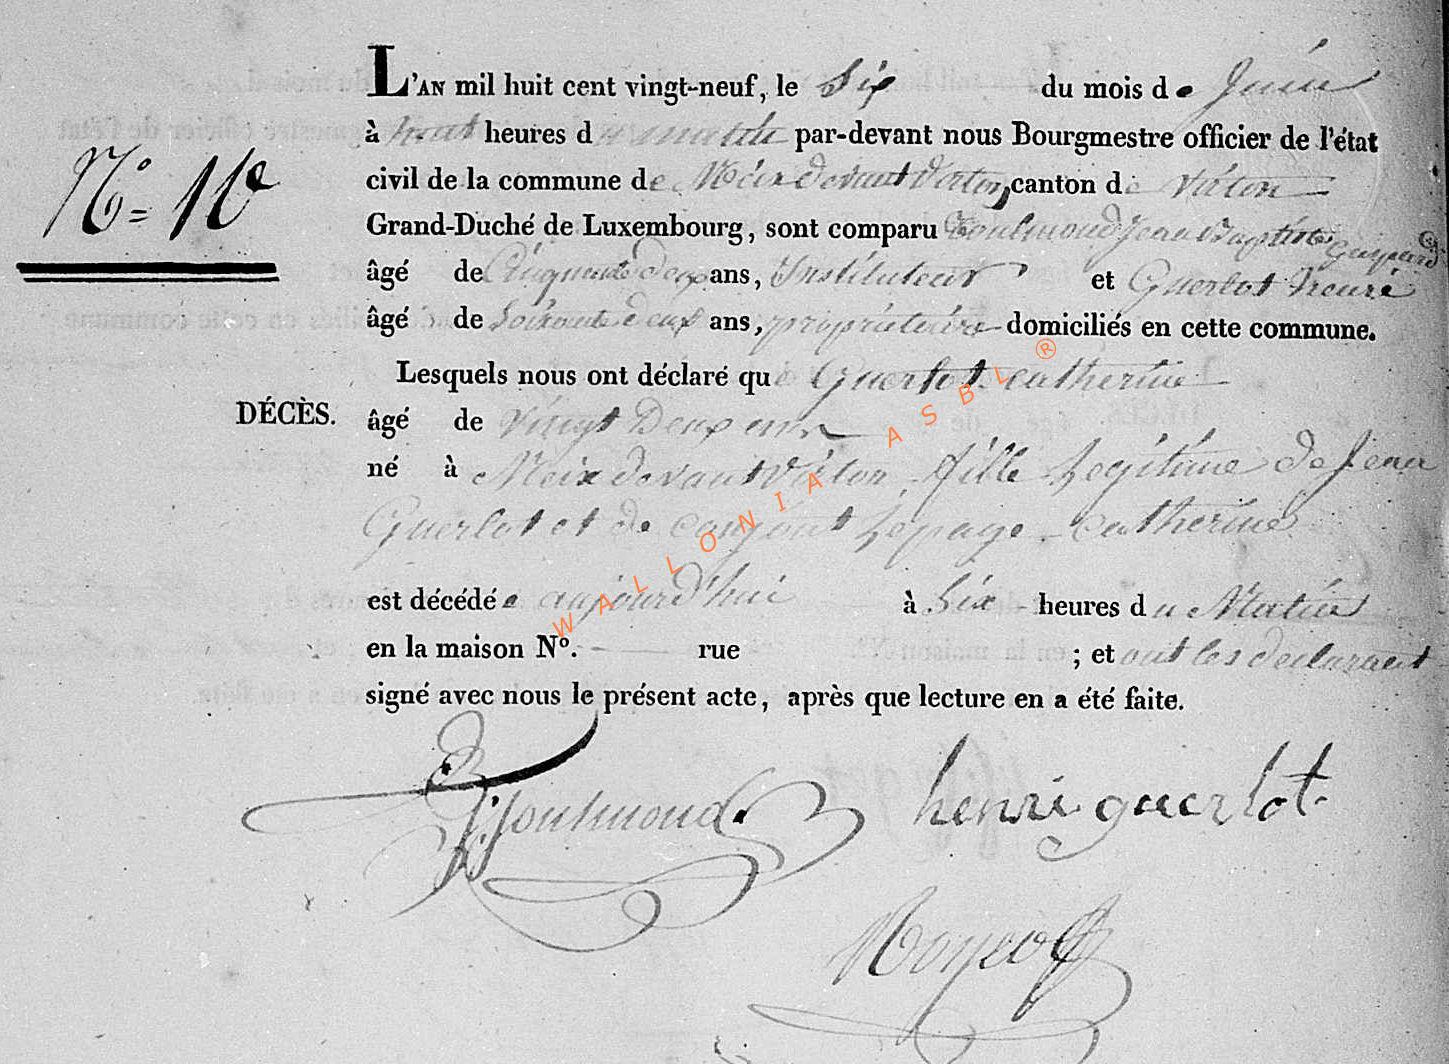 L'AN mil huit cent vingt-neuf, le Six du mois de Juin
à huit heures du matin par-devant nous Bourgmestre officier de l'état
civil de la commune de Meix devant Virton, canton de Virton
Grand-Duché de Luxembourg, sont comparu foulmoud Jean Baptiste Gaspard
âgé de Cinquante Deux ans, Instituteur et Guerlot henri
âgé de Soixante deux ans, propriétaire domiciliés en cette commune.
Lesquels nous ont déclaré que Guerlot catherine
DÉCÈS.
âgé de vingt Deux ans
né à Meix devant Virton, fille Legitime de Jean
Guerlot et de conjoint Lepage catherine
est décédée aujourd'hui à Six heures du Matin
en la maison Nº. rue ; et ont les declarant
signé avec nous le présent acte, après que lecture en a été faite.
henri guerlot
Nº=
WALLONIA ASBL ®